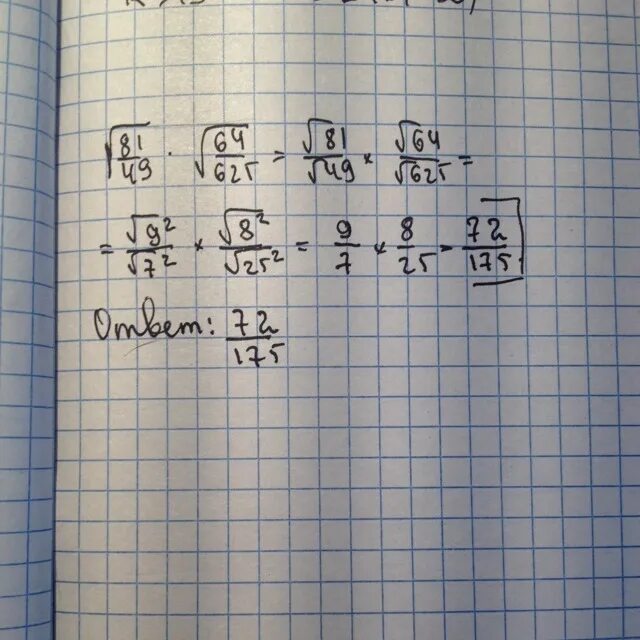 √81/49 · √64/625 = √81/√49 × √64/√625 =
= √9²/√7² × √8²/√25² = 9/7 × 8/25 = 72/175
Ответ: 72/175